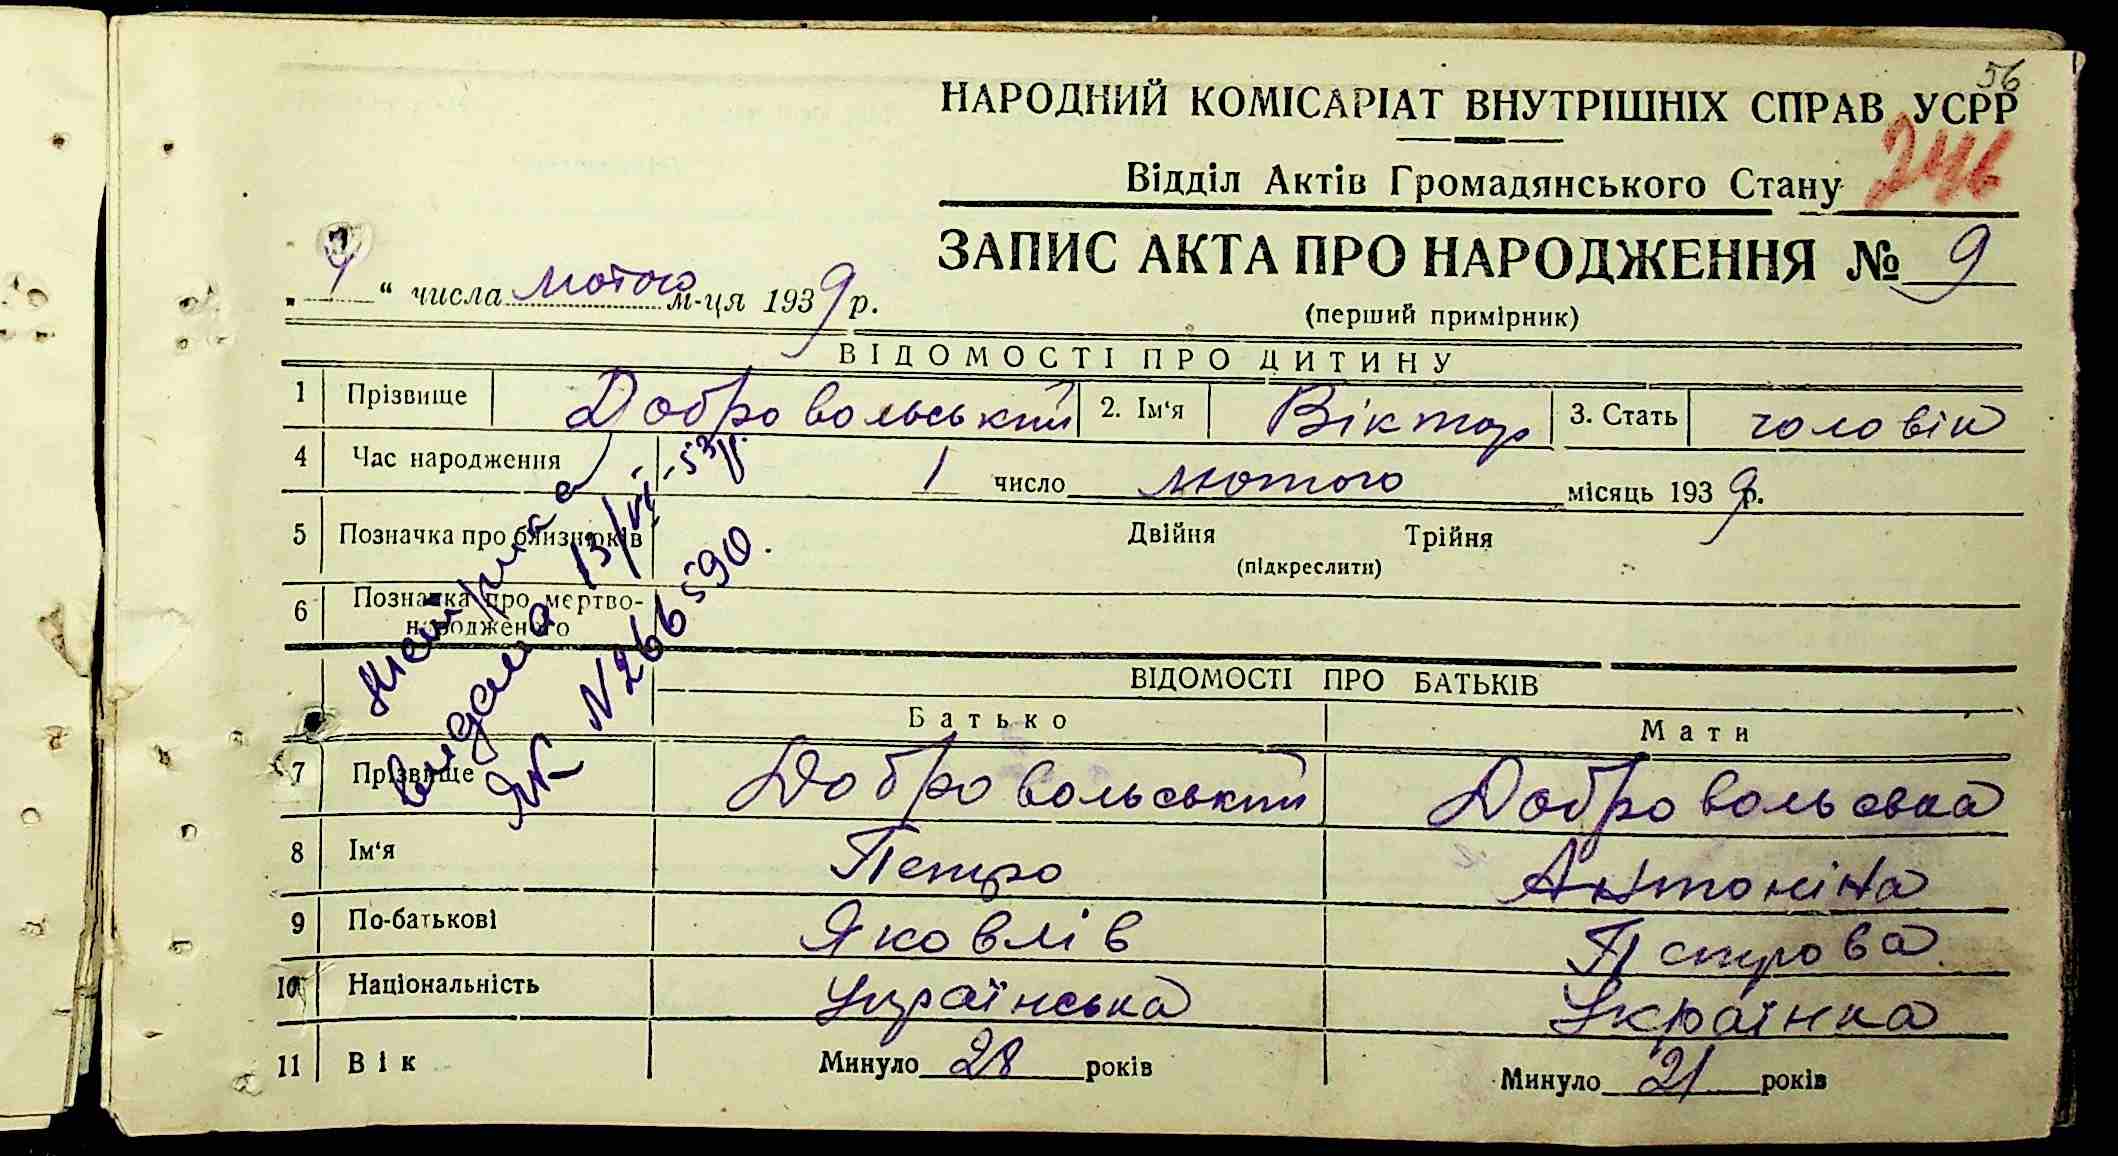 56
НАРОДНИЙ КОМІСАРІАТ ВНУТРІШНІХ СПРАВ УСРР
246
Відділ Актів Громадянського Стану
ЗАПИС АКТА ПРО НАРОДЖЕННЯ № 9
(перший примірник)
" числа лютого м-ця 1939 р.
ВІДОМОСТІ ПРО ДИТИНУ
1 Прізвище Добровольський 2. Ім'я Віктор 3. Стать чоловік
4 Час народження 1 число лютого місяць 1939 р.
5 Позначка про близнюків Двійня Трійня
(підкреслити)
6 Позначка про мертво-
народженого
видана 13/VI-53р.
ЯК N266590.
ВІДОМОСТІ ПРО БАТЬКІВ
Батько Мати
7 Прізвище Добровольський Добровольська
8 Ім'я Петро Антоніна
9 По-батькові Яковлів Петрова
10 Національність Українська Українка
11 Вік Минуло 28 років Минуло 21 років